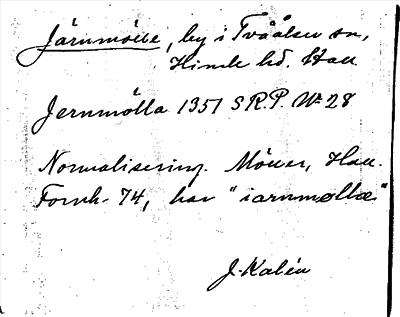 Järnmölle, by i Tvååker sn,
Himle hd. Hall
Jernmölla 1351 S.R.P. Nr 28
Normalisering. Möller, Hall.
Fornh. 74, har "iarnmøllæ"
J. Kalén